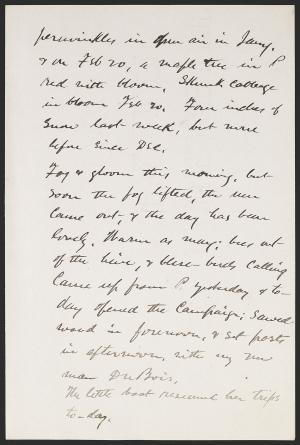 periwinkles in open air in Jany.
& on Feb 20, a maple tree in P
red with bloom. Skunk cabbage
in bloom Feb 20. Four inches of
snow last week, but none
before since Dec.
Fog & gloom this morning, but
soon the fog lifted, the sun
came out, & the day has been
lovely. Warm as may; bees out
of the hive, & blue-birds calling
Came up from P yesterday & to-
day opened the Campaign; Sawed
wood in forenoon, & set posts
in afternoon, with my new
man DuBois.
The little boat resumed her trips
to-day.